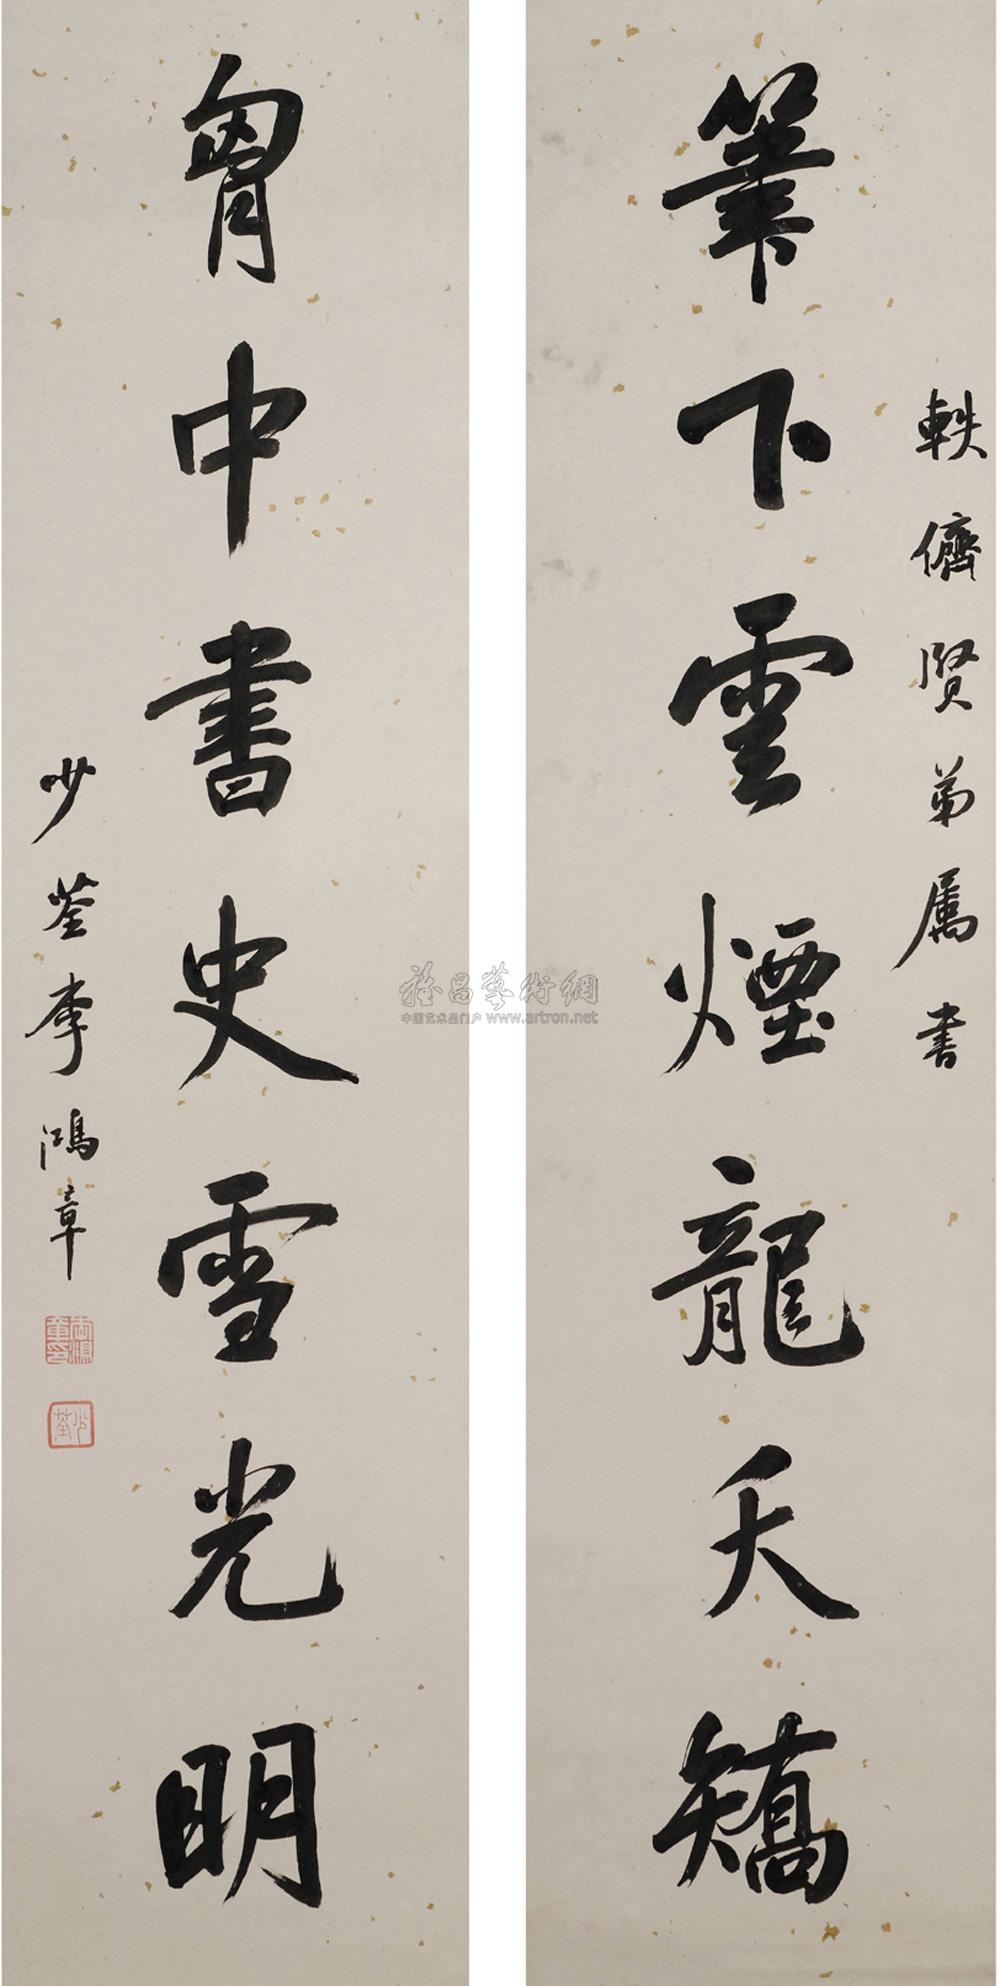 軼儕賢弟属書
筆下雲煙龍夭矯
胷中書史雪光明
少荃李鴻章
李鴻章印
少荃
雅昌藝術網
中国艺术品门户 www.artron.net